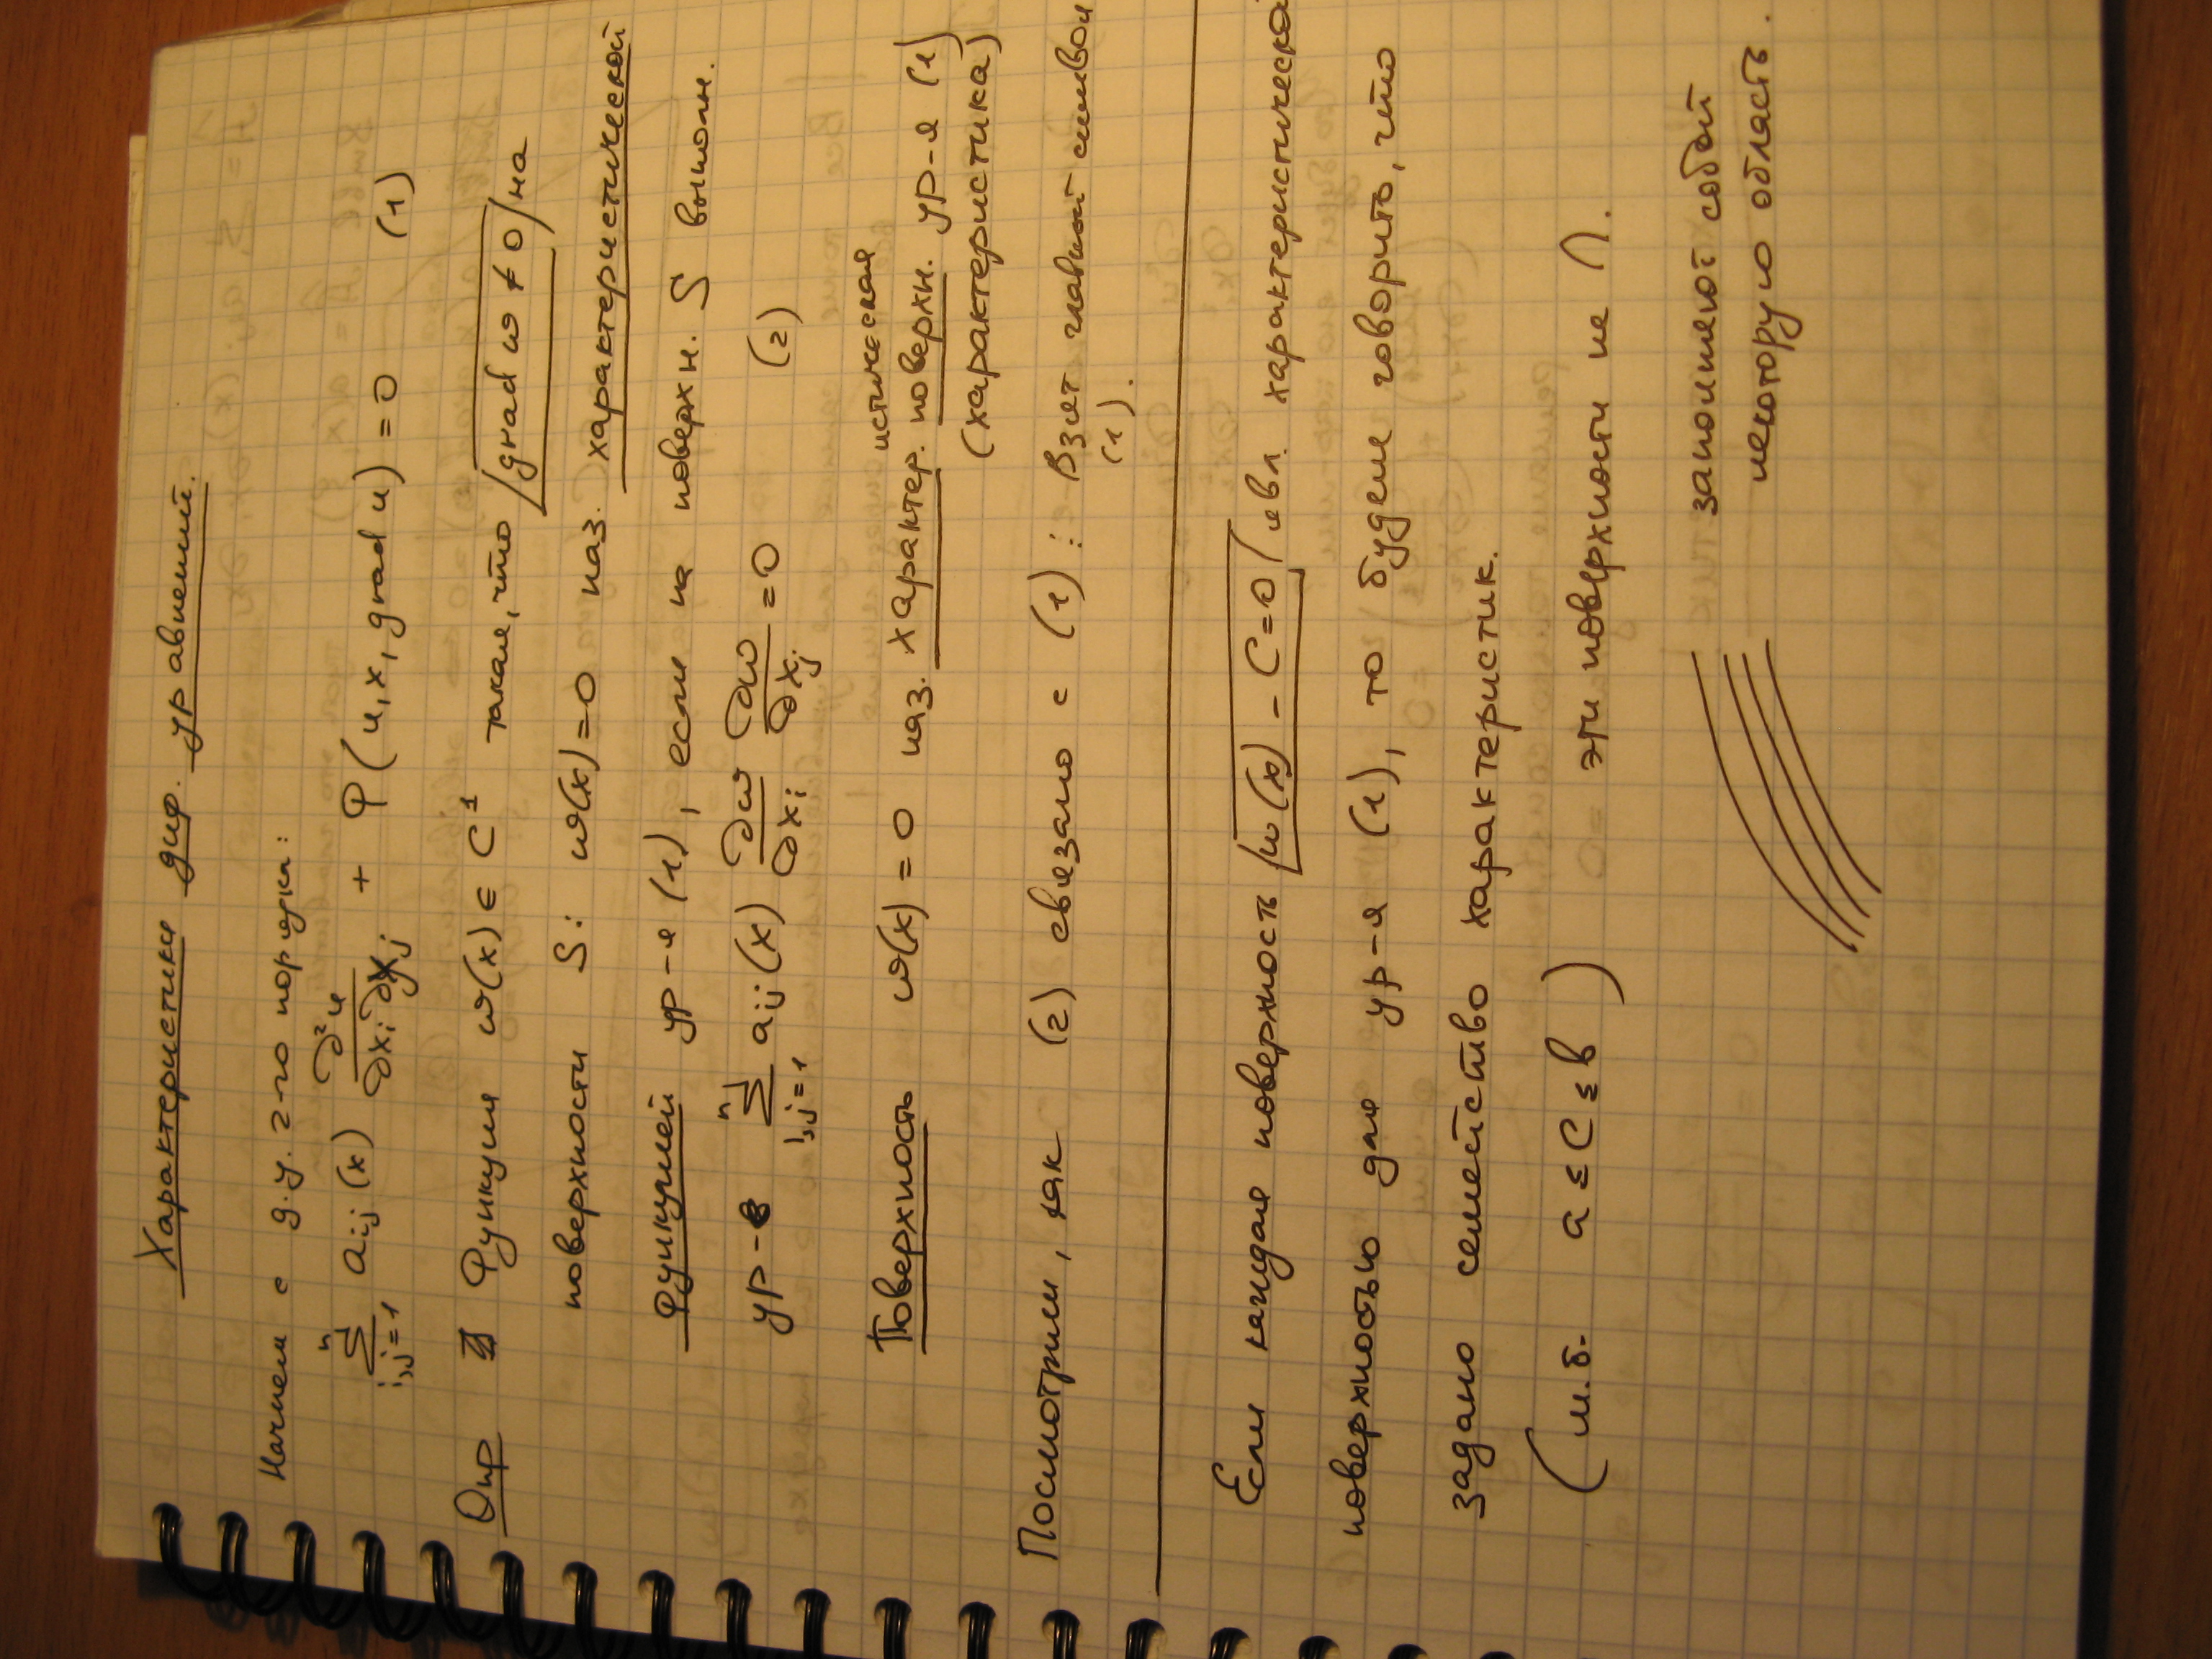 Характеристики диф. уравнений.
Начнем с д.у. 2-го порядка:
∑_{i,j=1}^{n} a_{ij}(x) ∂²u/∂x_i∂x_j + Φ(u, x, grad u) = 0 (1)
Опр Функция ω(x) ∈ C¹ такая, что grad ω ≠ 0 на
поверхности S: ω(x) = 0 наз. характеристической
функцией ур-я (1), если на поверхн. S выполн.
ур-е ∑_{i,j=1}^{n} a_{ij}(x) ∂ω/∂x_i ∂ω/∂x_j = 0 (2)
истическая
Поверхность ω(x) = 0 наз. характер. поверхн. ур-я (1)
(характеристика)
Посмотрим, как (2) связано с (1): Взят главный символ
(1).
Если каждая поверхность ω(x) - C = 0 явл. характеристической
поверхностью для ур-я (1), то будем говорить, что
задано семейство характеристик.
(м.б. a ≤ C ≤ b) эти поверхности не ∩.
заполняют собой
некоторую область.